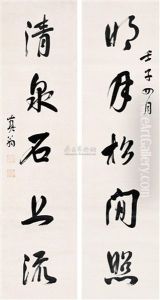 壬子四月
明月松間照
清泉石上流